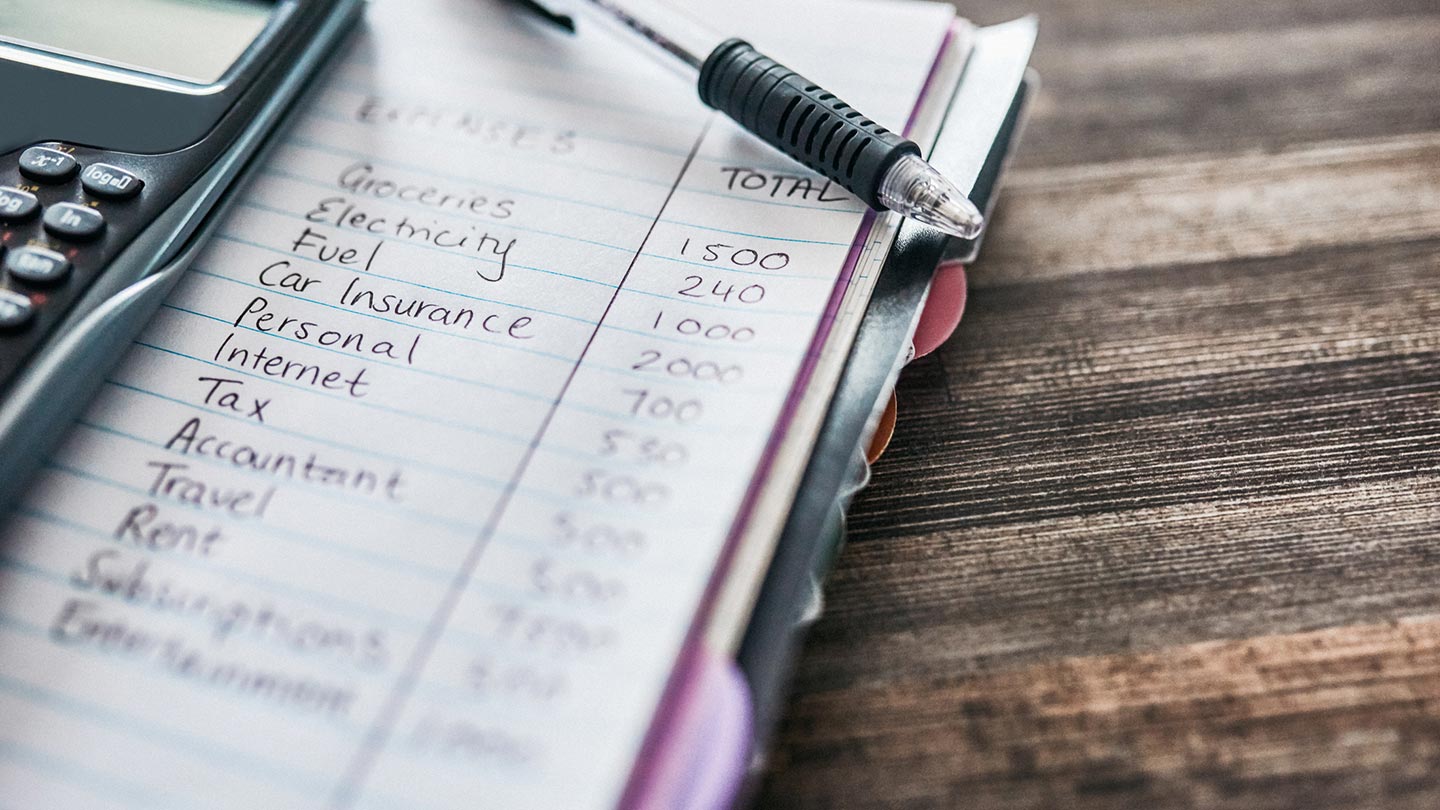 x⁻¹
ln
EXPENSES
TOTAL
Groceries 1500
Electricity 240
Fuel 1000
Car Insurance 2000
Personal 700
Internet
Tax 500
Accountant 500
Travel 500
Rent
Subscriptions